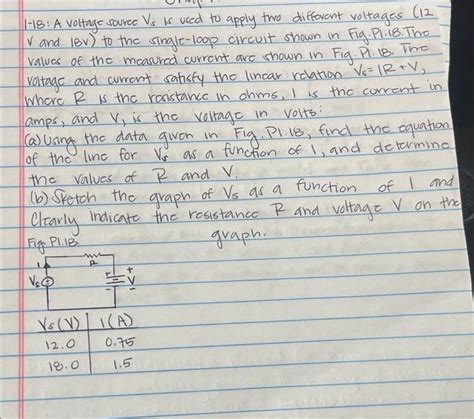 1-18: A voltage source Vs is used to apply two different voltages (12
V and 18v) to the single-loop circuit shown in Fig. P1.18. The
values of the measured current are shown in Fig P1.18. The
voltage and current satisfy the linear relation Vs=IR+V,
where R is the resistance in ohms, I is the current in
amps, and Vs is the voltage in volts:
(a) Using the data given in Fig. P1.18, find the equation
of the line for Vs as a function of I, and determine
the values of R and V.
(b) Sketch the graph of Vs as a function of I and
Clearly indicate the resistance R and voltage V on the
graph.
Fig P1.18
R
I
Vs
+
+ V
-
-
Vs(V) I(A)
12.0 0.75
18.0 1.5